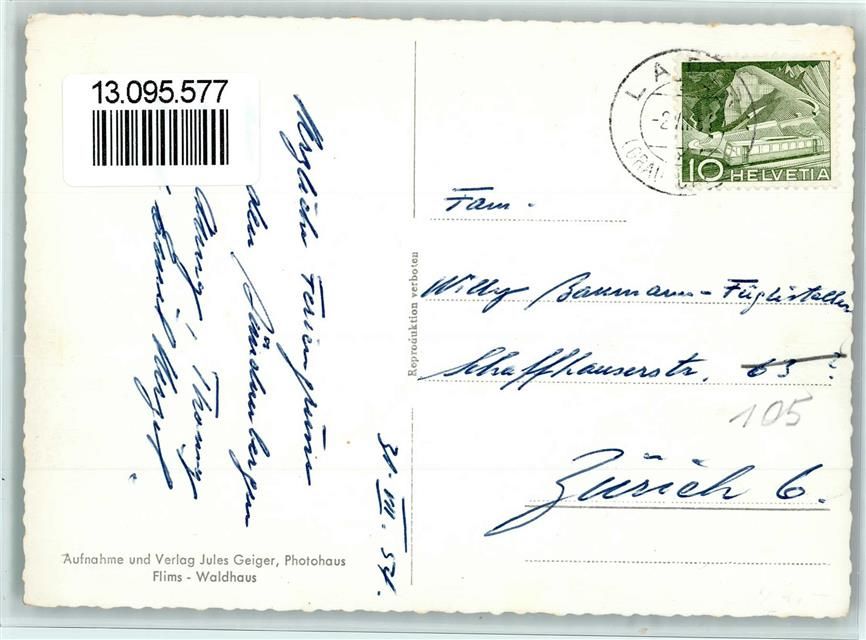 13.095.577
Herzliche Feriengrüsse
aus den Bündnerbergen
31. VIII. 54.
Aufnahme und Verlag Jules Geiger, Photohaus
Flims - Waldhaus
Reproduktion verboten
10 HELVETIA
Fam.
Willy Baumann-Füglistaller
Schaffhauserstr. 63
105
Zürich 6.